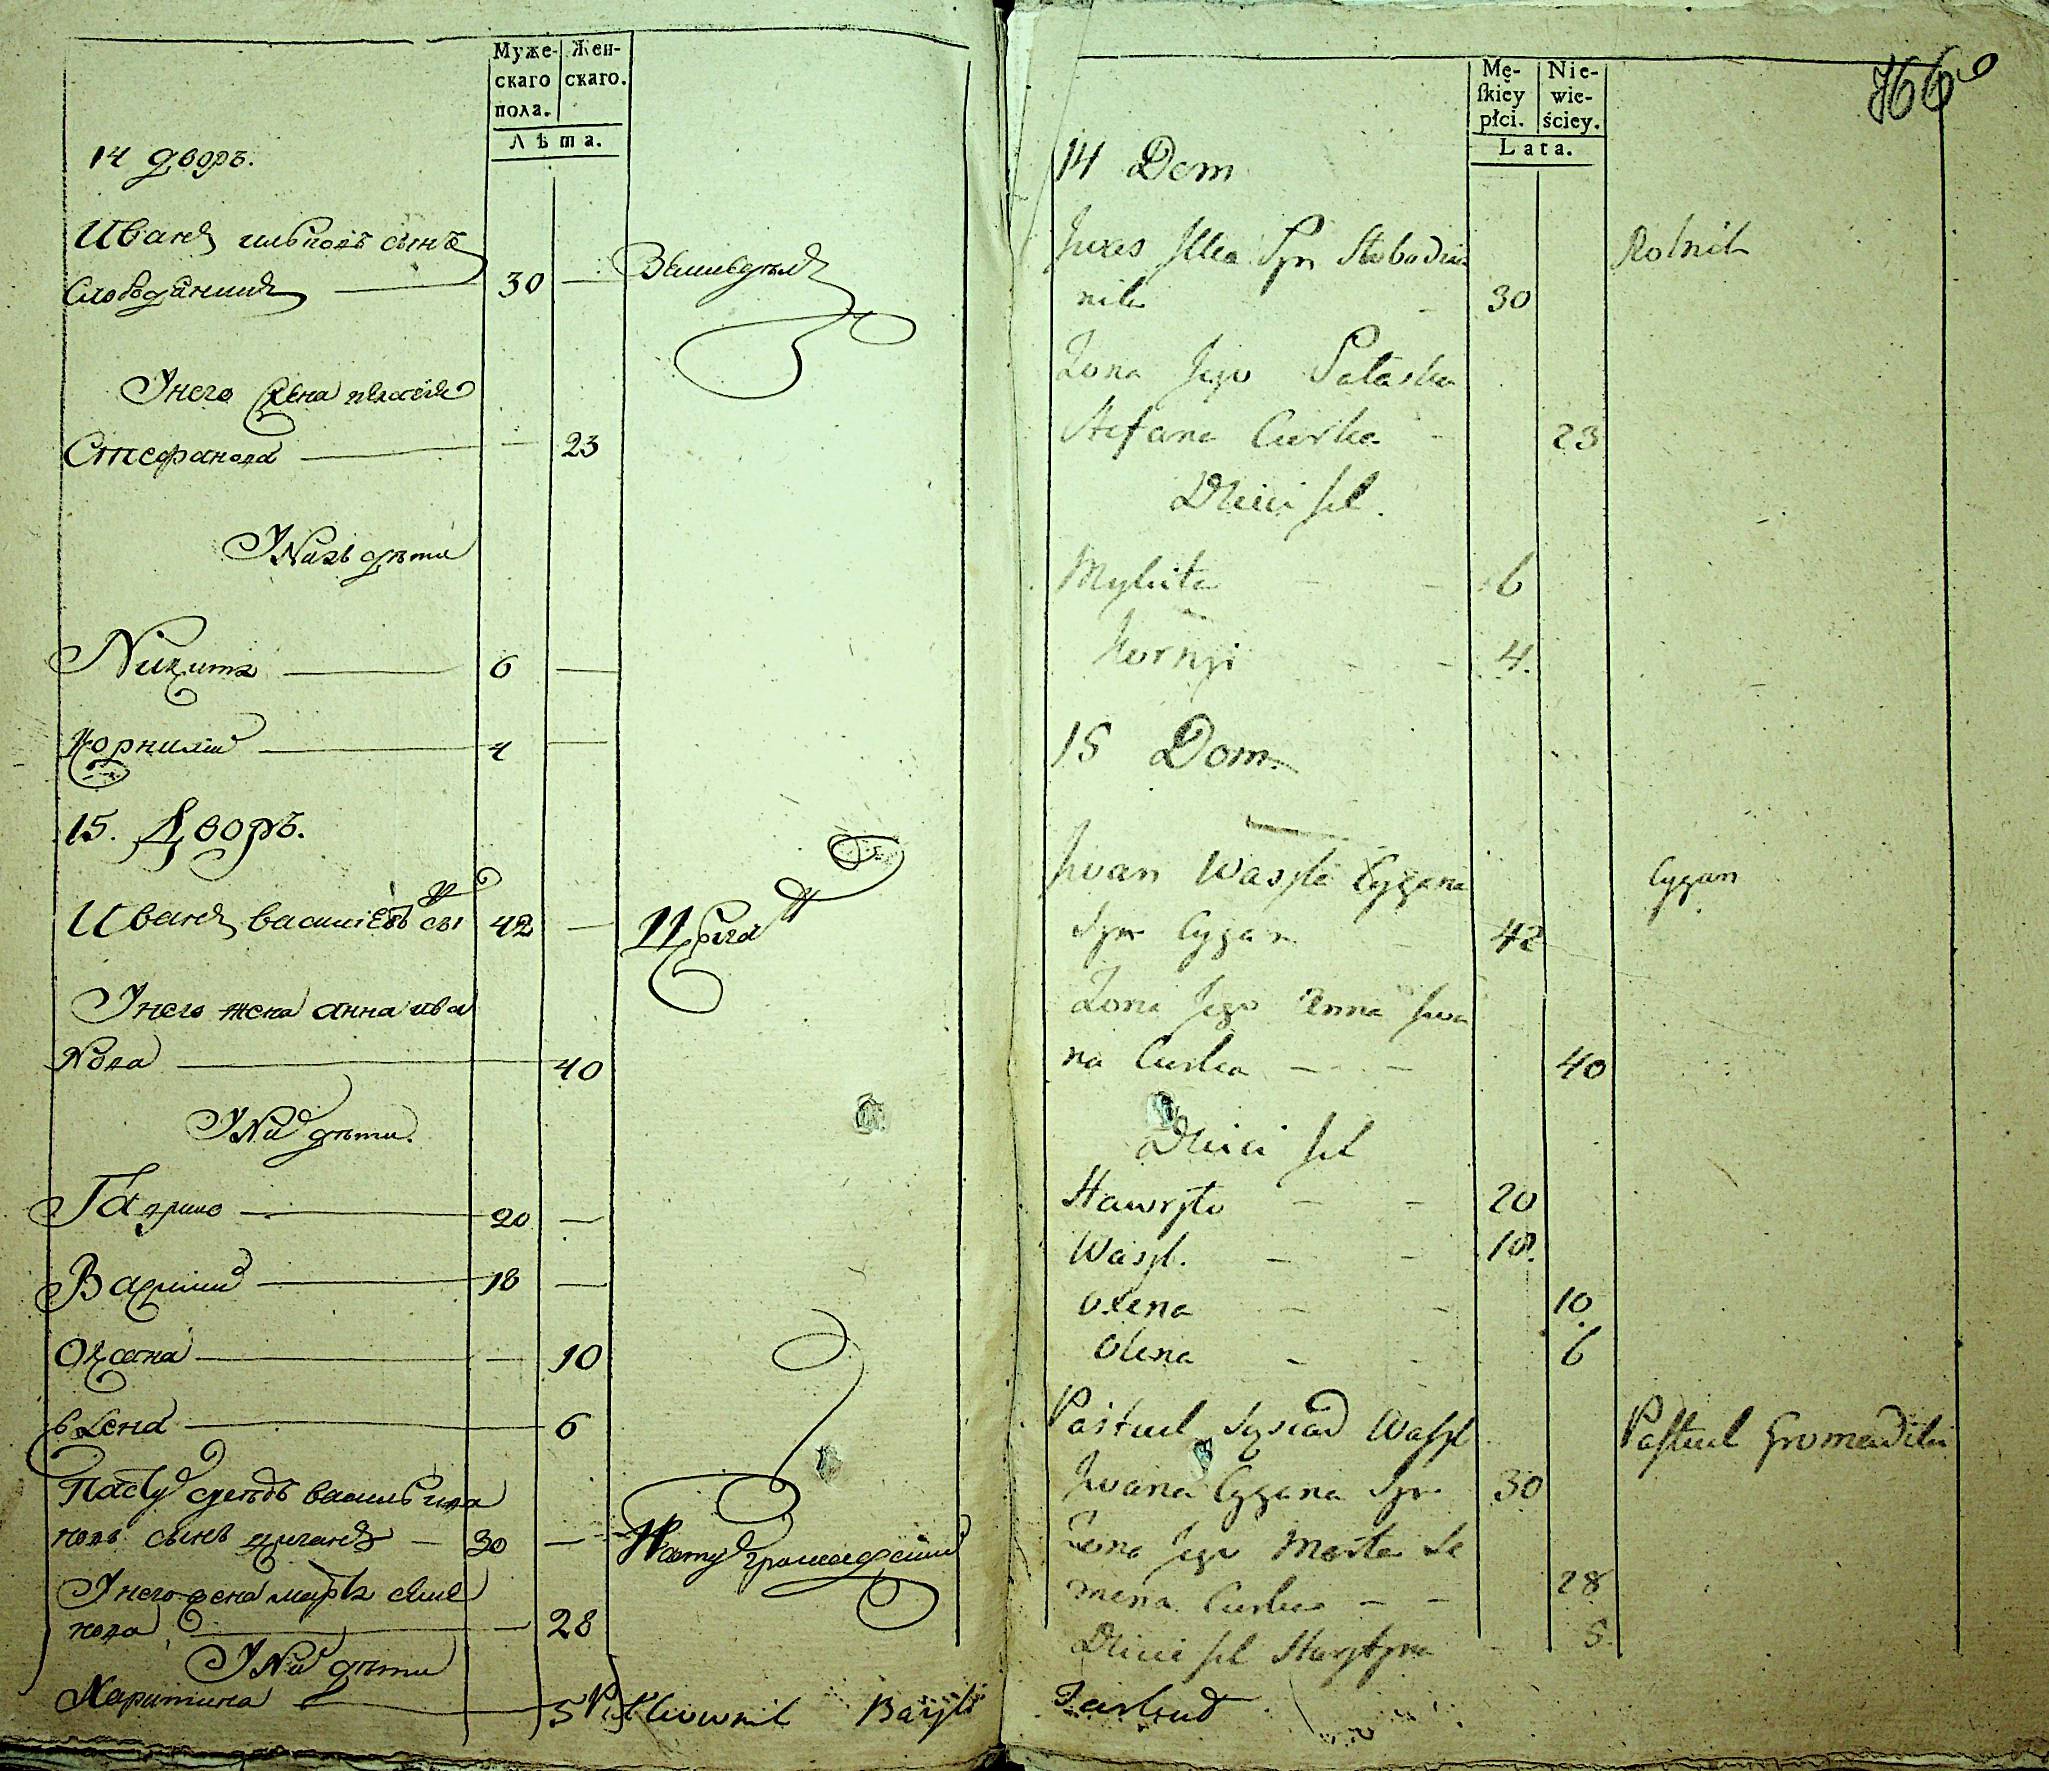 Муже-
скаго
пола.
Жен-
скаго.
Лѣта.
14 дворъ.
Иванъ сынъ
30 —
Унего жена
Стефанова — — 23
Унихъ дѣти
Никита — 6 —
Корнилий — 4 —
15. Дворъ.
Иванъ василиевъ сы 42 —
Унего жена анна ива
нова — 40
Уних дѣти.
Гаврило — 20 —
Василий — 18 —
Оксана — — 10
елена — 6
Пастух сусѣдъ василь ива
новъ сынъ циганъ — 30 — Пастух громадский
Унего жена марѳа семе
нова — — 28
Уних дѣти
Харитина — 5
Bazyli
Mę-
ſkiey
płci.
Nie-
wie-
ściey.
Lata.
14 Dom
Iwas Illa Syn Słobodia
nik - 30
Rolnik
Zona Jego Palaska
Stefana Curka - 23
Dzieci Ich.
Mykita - - 6
Kornyi - - 4.
15 Dom
Iwan Wasyla Cygana
Syn Cygan - 42
Cygan
Zona Jego Anna Iwa
na Curka - - 40
Dzieci Ich
Hawryło - - 20
Wasyl. - - 18.
Oxena - - 10
Olena - - 6
Pastuch Sąsiad Waſyl
Iwana Cygana Syn 30
Paſtuch Gromadzki
Zona Jego Marta Se
mena Curka - - 28
Dzieci Ich Harytyna - 5.